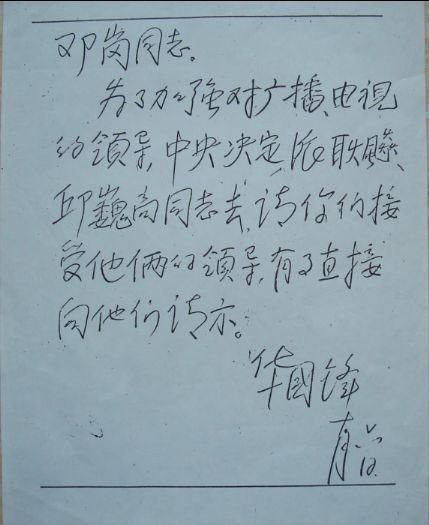 邓岗同志.
为了加强对广播、电视
的領导,中央决定,派耿飚、
邱巍高同志去,请你们接
受他俩的領导,有了直接
向他们请示。
华國锋